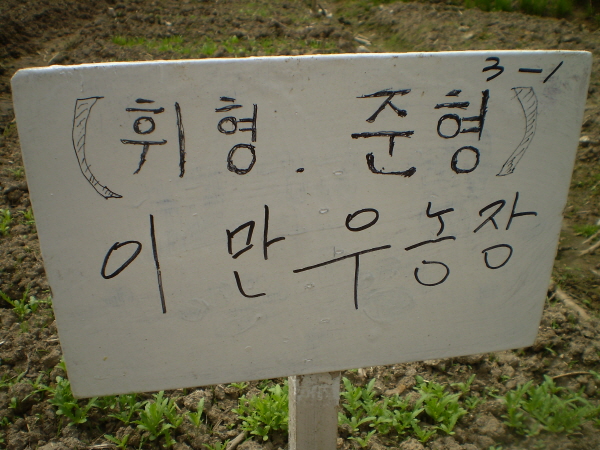 3-1
(휘형. 준형)
이만우농장